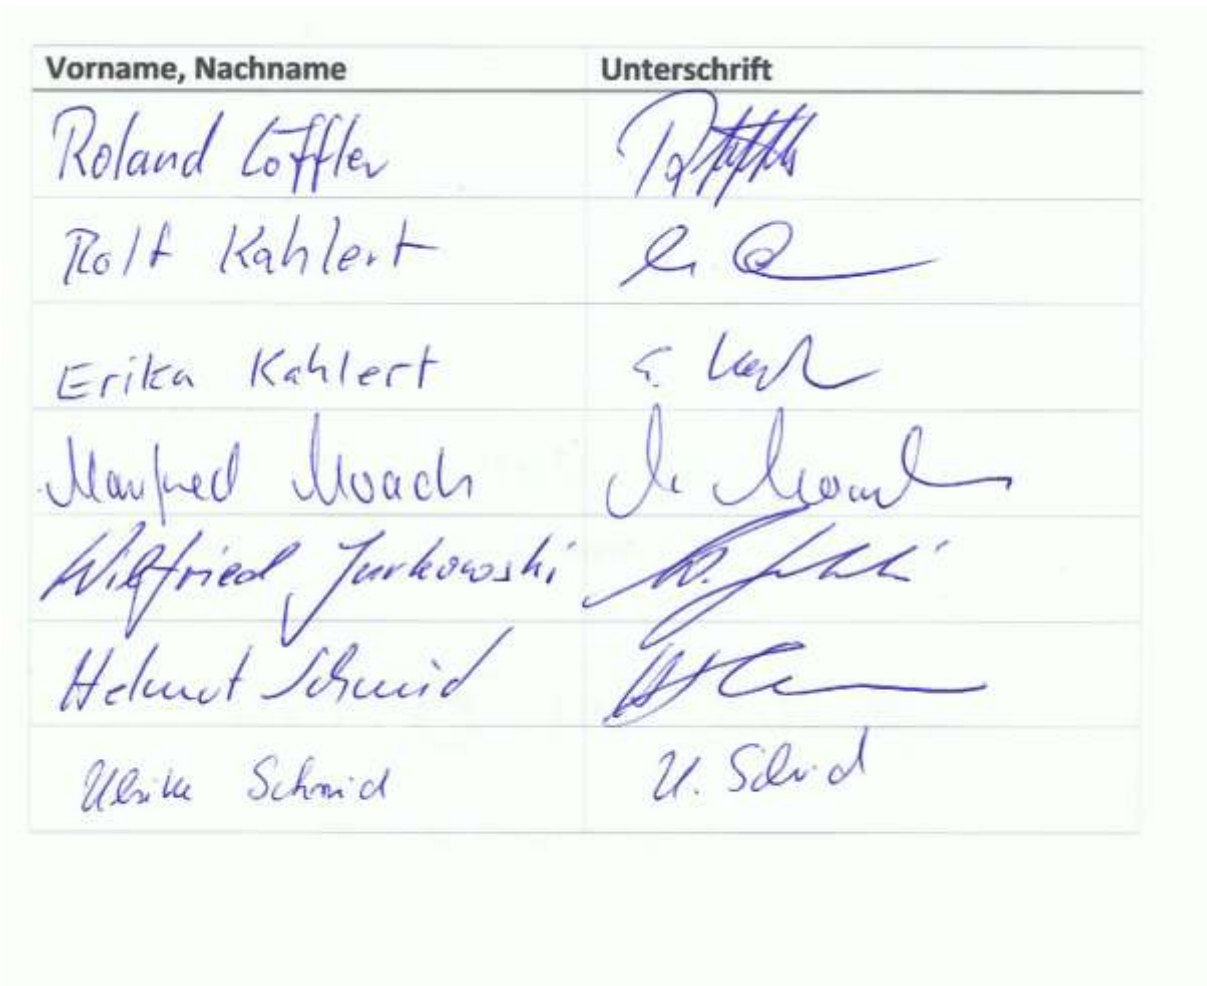 Vorname, Nachname Unterschrift
Roland Löffler
Rolf Kahlert
Erika Kahlert E.
Manfred Moach M. Moach
Wilfried Jurkowski W.
Helmut Schmid
Ulrike Schmid U. Schmid